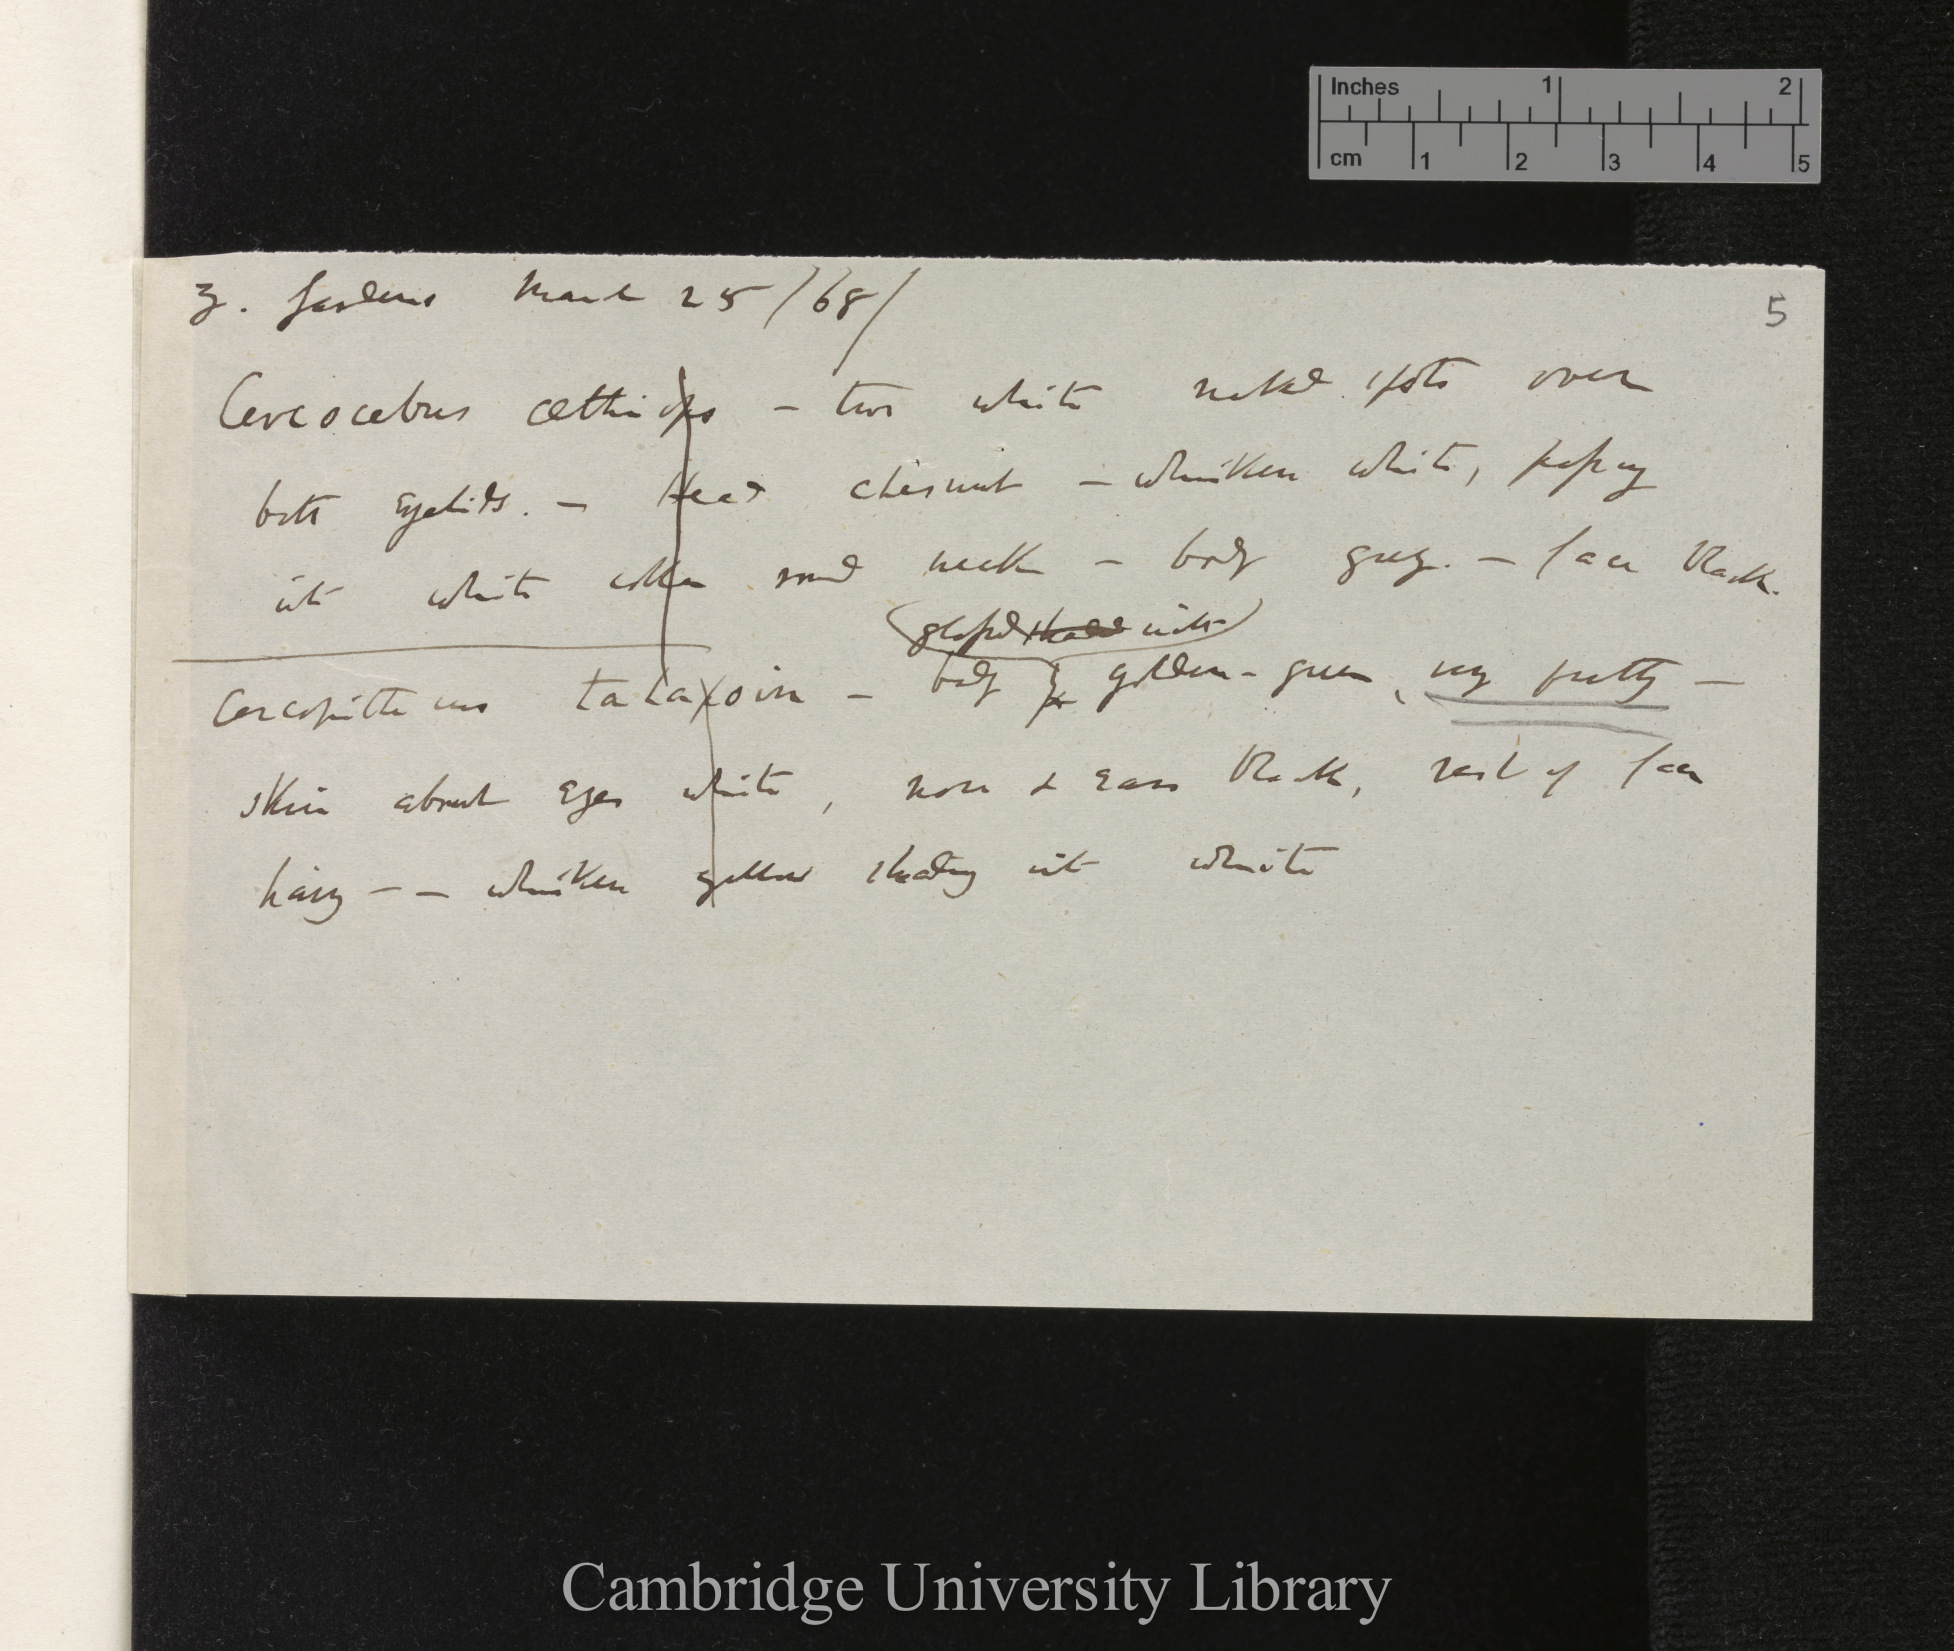 Inches 1 2
cm 1 2 3 4 5
5
Z. Gardens March 25/68/
Cercocebus œthiops – two white naked spots over
both eyelids. – Head chesnut – whiskers white, passing
into white collar round neck – body grey. – face black.
glossed shaded with
Cercopithecus talapoin – body golden-green, very pretty –
skin about eyes white, nose & ears black, rest of face
hairy – – whiskers yellow shading into white
Cambridge University Library